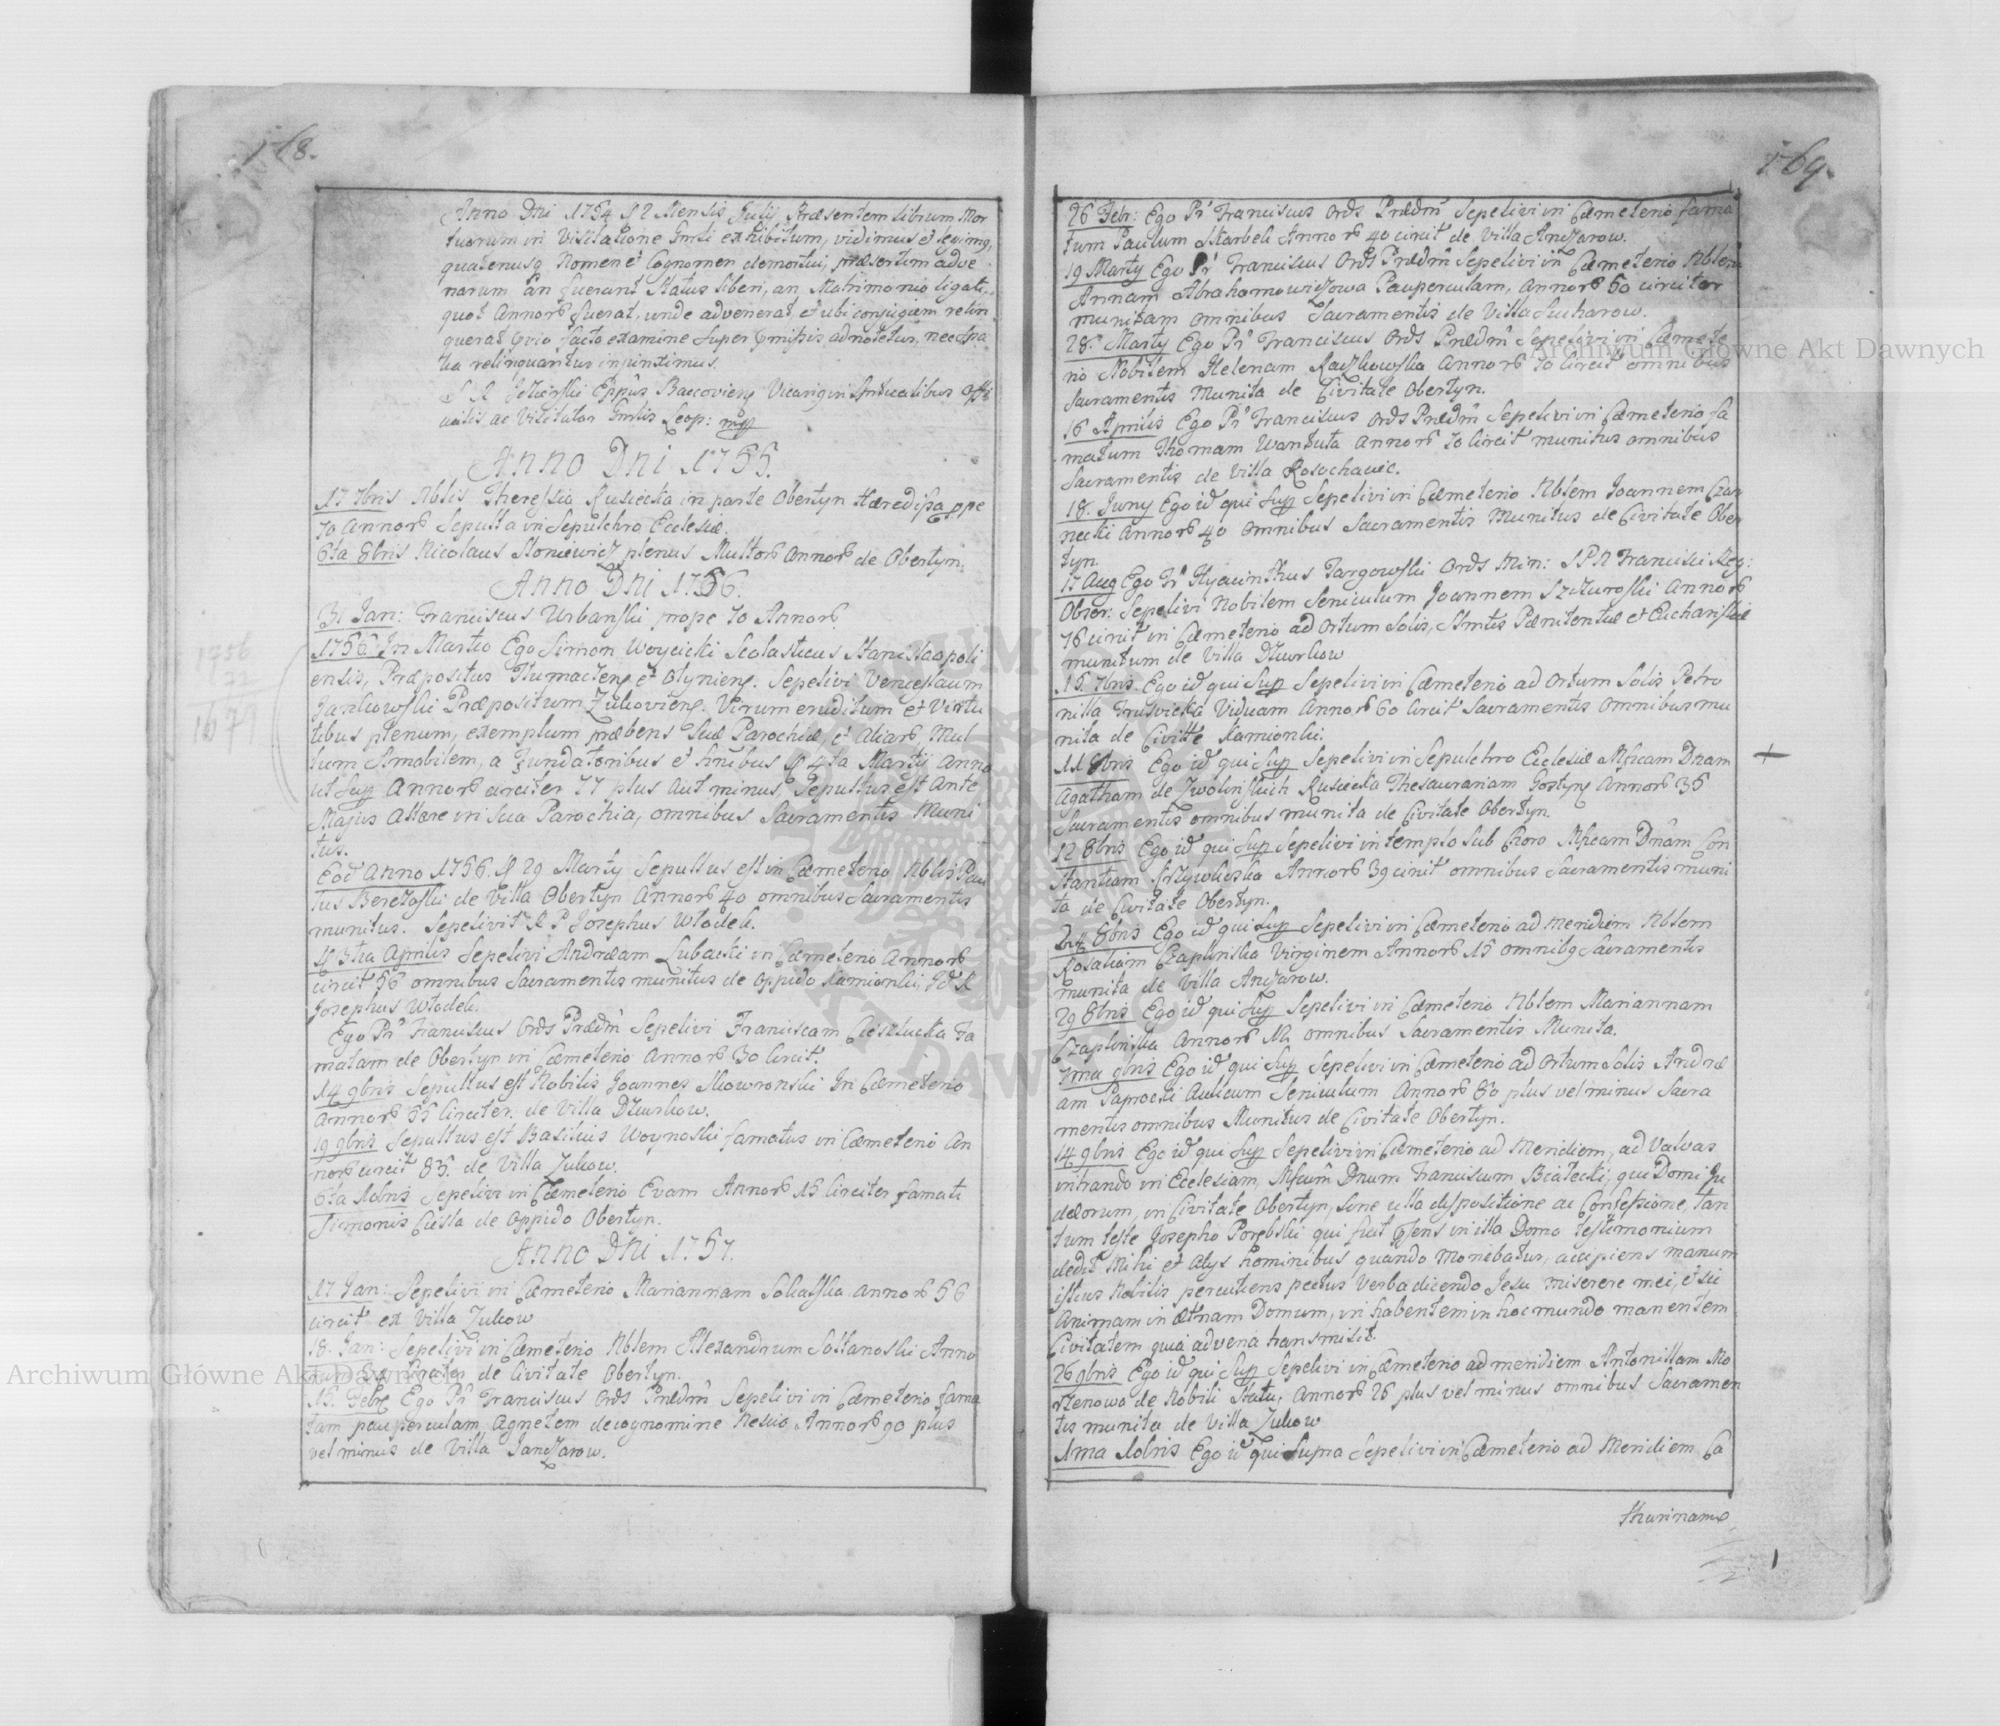 168.
Anno Dni 1754 12 Mensis Julij Præsentem librum Mor
tuorum in Visitatione Gnrli exhibitum, vidimus et legimus,
quatenusq Nomen et Cognomen demortui, præsertim adve
narum an fuerant Status liberi, an Matrimonio ligati,
quot Annorũ fuerat, unde advenerat, et ubi conjugem relin
querat prio facto examine super præmissis adnotetur, nec spa
tia relinquantur injunximus.
Eppus Baccoviens Vicarius in Spirtualibus Offi
cialis ac Visitator Gnrlis Leop: mpp
Anno Dni 1755.
17 7bris Nblis Theressia Rusiecka in parte Obertyn Hæredissa ppe
70 Annorũ Sepulta in Sepulchro Ecclesiæ.
6ta 8bris Nicolaus Stoniewicz plenus Multorũ Annorũ de Obertyn.
Anno Dni 1756.
31 Jan: Franciscus Urbanski prope 70 Annorũ
1756 In Martio Ego Simon Woycicki Scolasticus Stanislaopoli
ensis, Præpositus Tłumaciens et Olyniens. Sepelivi Venceslaum
Jankowski Præpositum Zukoviens. Virum eruditum et Virtu
tibus plenum, exemplum præbens Suæ Parochiæ et Aliarũ Mul
tum Amabilem, a Fundatoribus et 4ta Martij Anno
ut Supp Annorũ circiter 77 plus aut minus, Sepultus est Ante
Majus Altare in Sua Parochia, omnibus Sacramentis Muni
tus.
1756
77
1679
Eod Anno 1756. 29 Marty Sepultus est in Cæmeterio Nblis Pau
lus Berezoski de Villa Obertyn Annorũ 40 omnibus Sacramentis
munitus. Sepelivit R P Josephus Włodek.
13tia Aprilis Sepelivi Andræam Lubaski in Cæmeterio Annorũ
circit 56 omnibus Sacramentis munitus de oppido Kamionki, Id R
Josephus Włodek.
Ego Pr Franciscus Ords Prædm Sepelivi Franciscam Cieszlucka Fa
matam de Obertyn in Cæmeterio Annorũ 30 Circit.
14 9bris Sepultus est Nobilis Joannes Skowronski In Cæmeterio
Annorũ 55 Circiter. de Villa Dzurkow.
19 9bris Sepultus est Basilius Woynoski famatus in Cæmeterio An
norũ circit 85. de Villa Zukow.
6ta Xbris Sepelivi in Cæmeterio Evam Annorũ 15 Circiter famati
Simonis Ciesla de Oppido Obertyn.
Anno Dni 1757.
17 Jan: Sepelivi in Cæmeterio Mariannam Sokalska Annorũ 56
circit ex Villa Zukow
18. Jan: Sepelivi in Cæmeterio Nblem Alexandrum Soltanoski Anno
rum Circiter de Civitate Obertyn.
15. Febr Ego Pr Franciscus Ords Prædm Sepelivi in Cæmeterio fama
tam pauperculam Agnetem de cognomine Nescio, Annorũ 90 plus
vel minus de Villa Janczarow.
169.
26 Febr: Ego Pr Franciscus Ords Prædm Sepelivi in Cæmeterio fama
tum Paulum Skarbek Annorũ 40 circit de Villa Anczarow.
19 Marty Ego Pr Franciscus Ords Prædm Sepelivi in Cæmeterio Nblem
Annam Abrahamowiczowa Pauperculam, Annorũ 60 circiter
munitam omnibus Sacramentis de Villa Sucharow.
28. Marty Ego Pr Franciscus Ords Prædm Sepelivi in Cæmete
rio Nobilem Helenam Raczkowska Annorũ 70 Circit omnibus
Sacramentis Munita de Civitate Obertyn.
16 Aprilis Ego Pr Franciscus Ords Prædm Sepelivi in Cæmeterio fa
matum Thomam Wantuła Annorũ 70 Circit munitus omnibus
Sacramentis de Villa Rosochacic.
18. Juny Ego id qui Supp Sepelivi in Cæmeterio Nblem Joannem Czar
necki Annorũ 40 omnibus Sacramentis Munitus de Civitate Ober
tyn.
17 Aug Ego Fr Hyacinthus Targowski Ords Min: S P N Francisci Reg:
Obser: Sepelivi Nobilem Seniculum Joannem Szczuroski Annorũ
76 circit in Cæmeterio ad Ortum Solis, Smtis Pænitentiæ et Eucharistiæ
munitum de Villa Dzurkow
15. 7bris Ego id qui Supp Sepelivi in Cæmeterio ad Ortum Solis Petro
nilla Truswicka Viduam Annorũ 60 Circit Sacramentis Omnibus mu
nita de Civitte Kamionki.
11 8bris Ego id qui Supp Sepelivi in Sepulchro Ecclesiæ Mficam Dnam
Agatham de Zwolinskich Rusiecka Thesaurariam Gostyns Annorũ 35
Sacramentis omnibus munita de Civitate Obertyn.
12 8bris Ego id qui Supp Sepelivi in templo Sub Choro Mficam Dnam Con
stantiam Krzywkoska Annorũ 39 circit omnibus Sacramentis muni
ta de Civitate Obertyn.
24 8bris Ego id qui Supp Sepelivi in Cæmeterio ad meridiem Nblem
Rosaliam Czaplinska Virginem Annorũ 15 omnibq Sacramentis
munita de Villa Anczarow.
29 8bris Ego id qui Supp Sepelivi in Cæmeterio Nblem Mariannam
Czaplinska Annorũ 12 omnibus Sacramentis Munita.
7ma 9bris Ego id qui Supp Sepelivi in Cæmeterio ad Ortum Solis Andræ
am Paprocki Aulicum Seniculum Annorũ 80 plus vel minus Sacra
mentis omnibus Munitus de Civitate Obertyn.
14 9bris Ego id qui Supp Sepelivi in Cæmeterio ad Meridiem, ad Valvas
intrando in Ecclesiam, Mficum Dnum Franciscum Białecki, qui Domi Ju
dæorum, in Civitate Obertyn, sine ulla dispositione ac Confessione, tan
tum teste Josepho Porębski qui fuit præsens in illa Domo testimonium
dedit Mihi et Alys hominibus quando Moriebatur, accipiens manum
istius Nobilis percutiens pectus Verba dicendo Jesu miserere mei, et sic
Animam in ætnam Domum, in habentem in hoc mundo manentem
Civitatem quia advena transmisit.
26 9bris Ego id qui Supp Sepelivi in Cæmeterio ad meridiem Antonillam Mo
rzenowa de Nobili Statu, Annorũ 26 plus vel minus omnibus Sacramen
tis munita de Villa Zukow
1ma Xbris Ego id qui Supra Sepelivi in Cæmeterio ad Meridiem Ca
tharinam
Archiwum Główne Akt Dawnych
Archiwum Główne Akt Dawnych